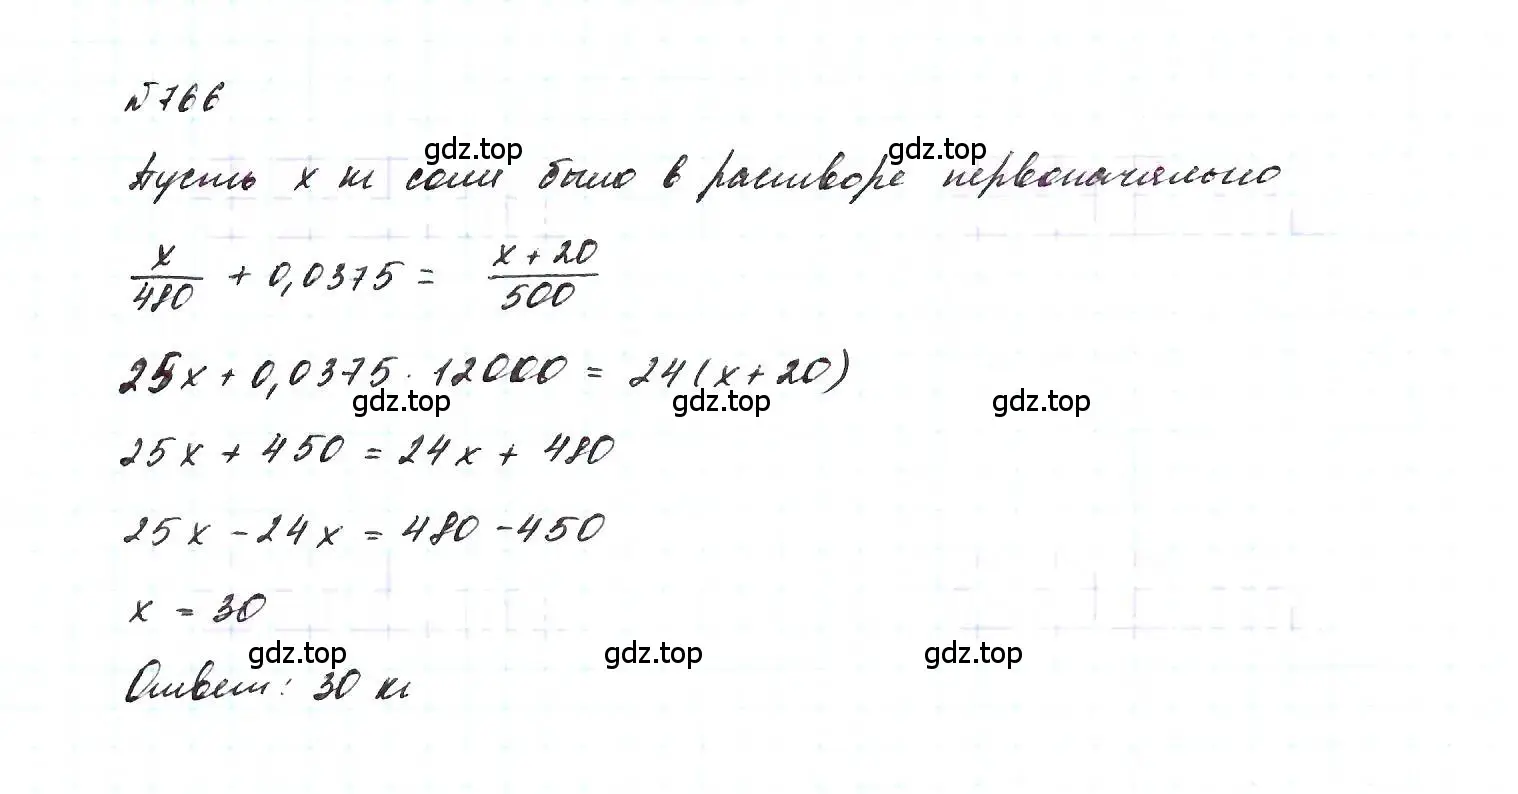 №766
gdz.top gdz.top
Пусть x кг соли было в растворе первоначально
x/480 + 0,0375 = x + 20/500
25x + 0,0375 · 12000 = 24(x + 20)
gdz.top gdz.top gdz.top
25x + 450 = 24x + 480
25x - 24x = 480 - 450
x = 30
gdz.top gdz.top gdz.top
Ответ: 30 кг